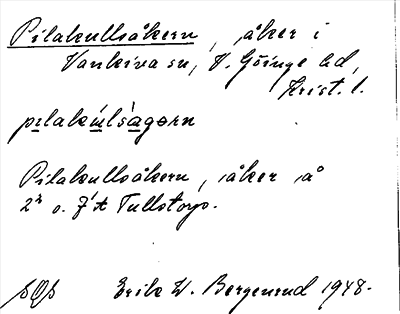 Pilakullsåkern, åker i
Vankiva sn, V. Göinge hd,
Krist. l.
pilakúlságərn
Pilakullsåkern, åker å
2² o. 7² Tullstorp.
Erik W. Bergenrud 1948.